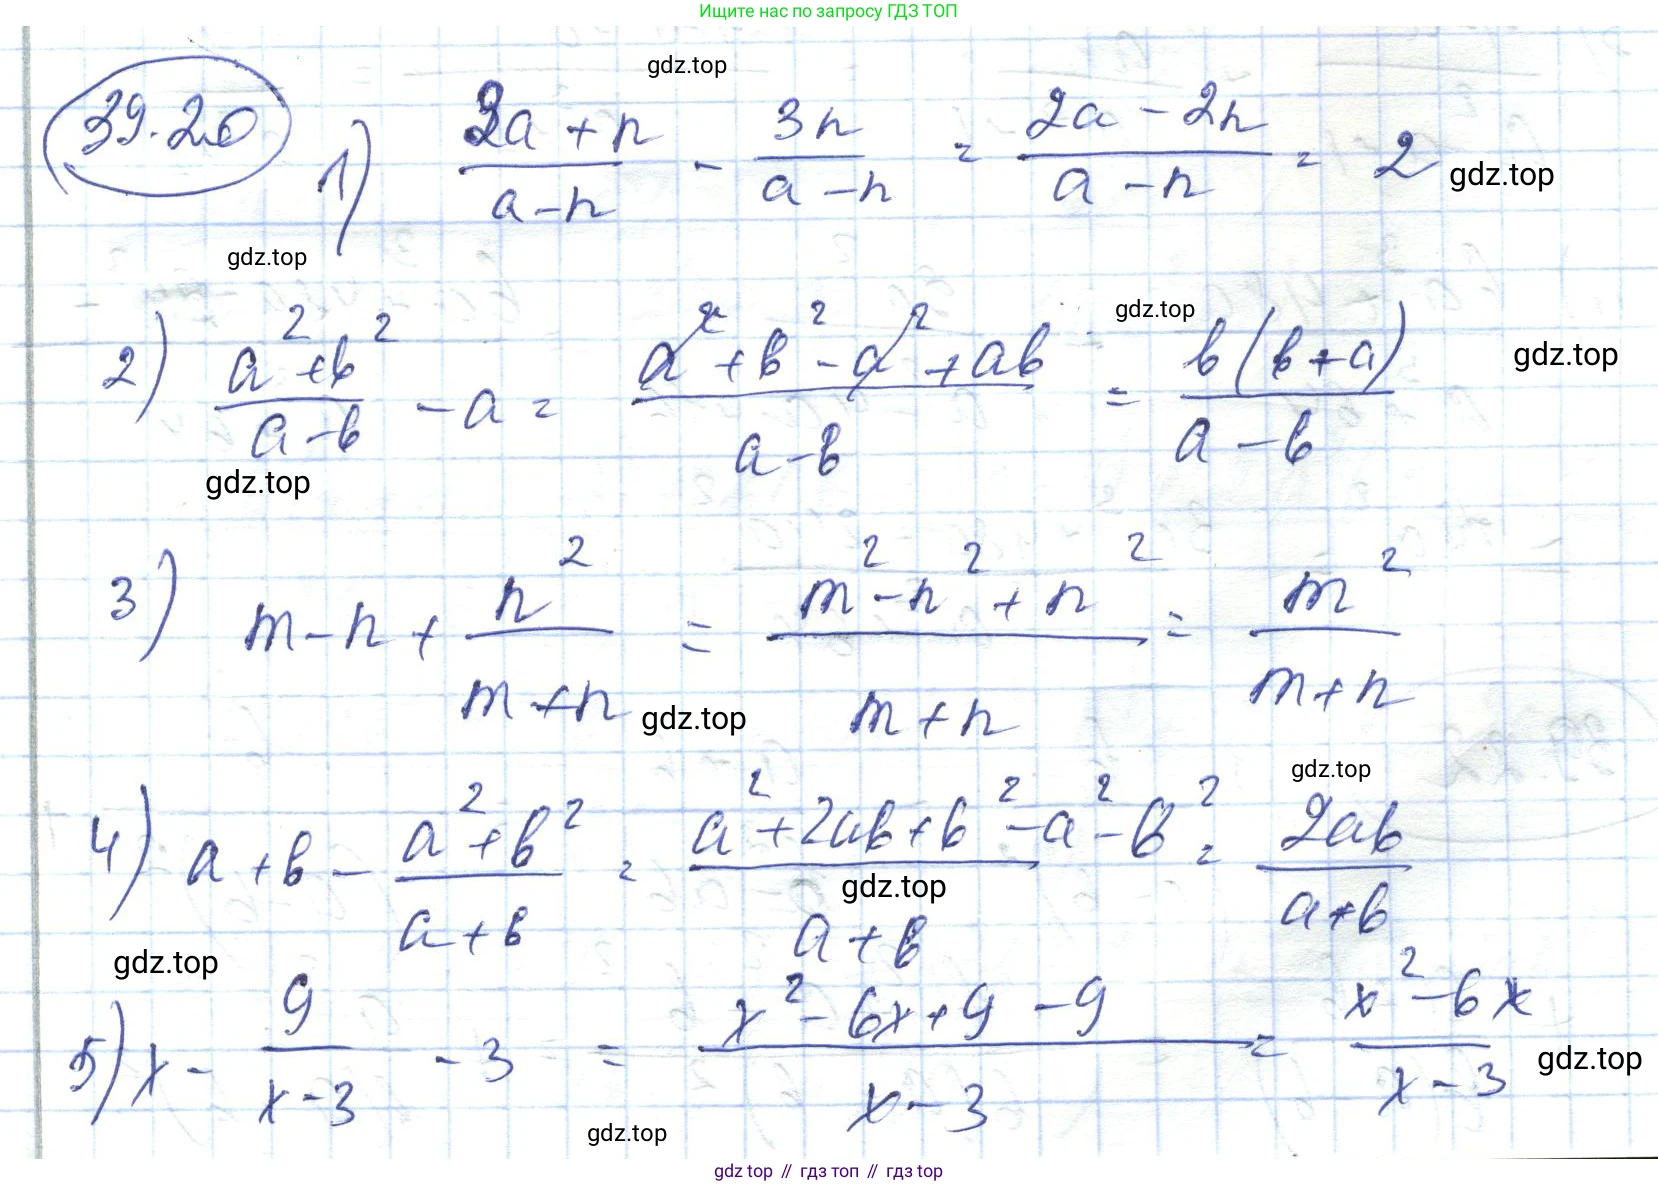 Ищите нас по запросу ГДЗ ТОП
gdz.top
39.20
1) (2a + n)/(a - n) - 3n/(a - n) = (2a - 2n)/(a - n) = 2
gdz.top
gdz.top
gdz.top
2) (a² + b²)/(a - b) - a = (a² + b² - a² + ab)/(a - b) = b(b + a)/(a - b)
gdz.top
gdz.top
3) m - n + n²/(m + n) = (m² - n² + n²)/(m + n) = m²/(m + n)
gdz.top
gdz.top
4) a + b - (a² + b²)/(a + b) = (a² + 2ab + b² - a² - b²)/(a + b) = 2ab/(a + b)
gdz.top
gdz.top
5) x - 9/(x - 3) - 3 = (x² - 6x + 9 - 9)/(x - 3) = (x² - 6x)/(x - 3)
gdz.top
gdz.top
gdz top // гдз топ // gdz top